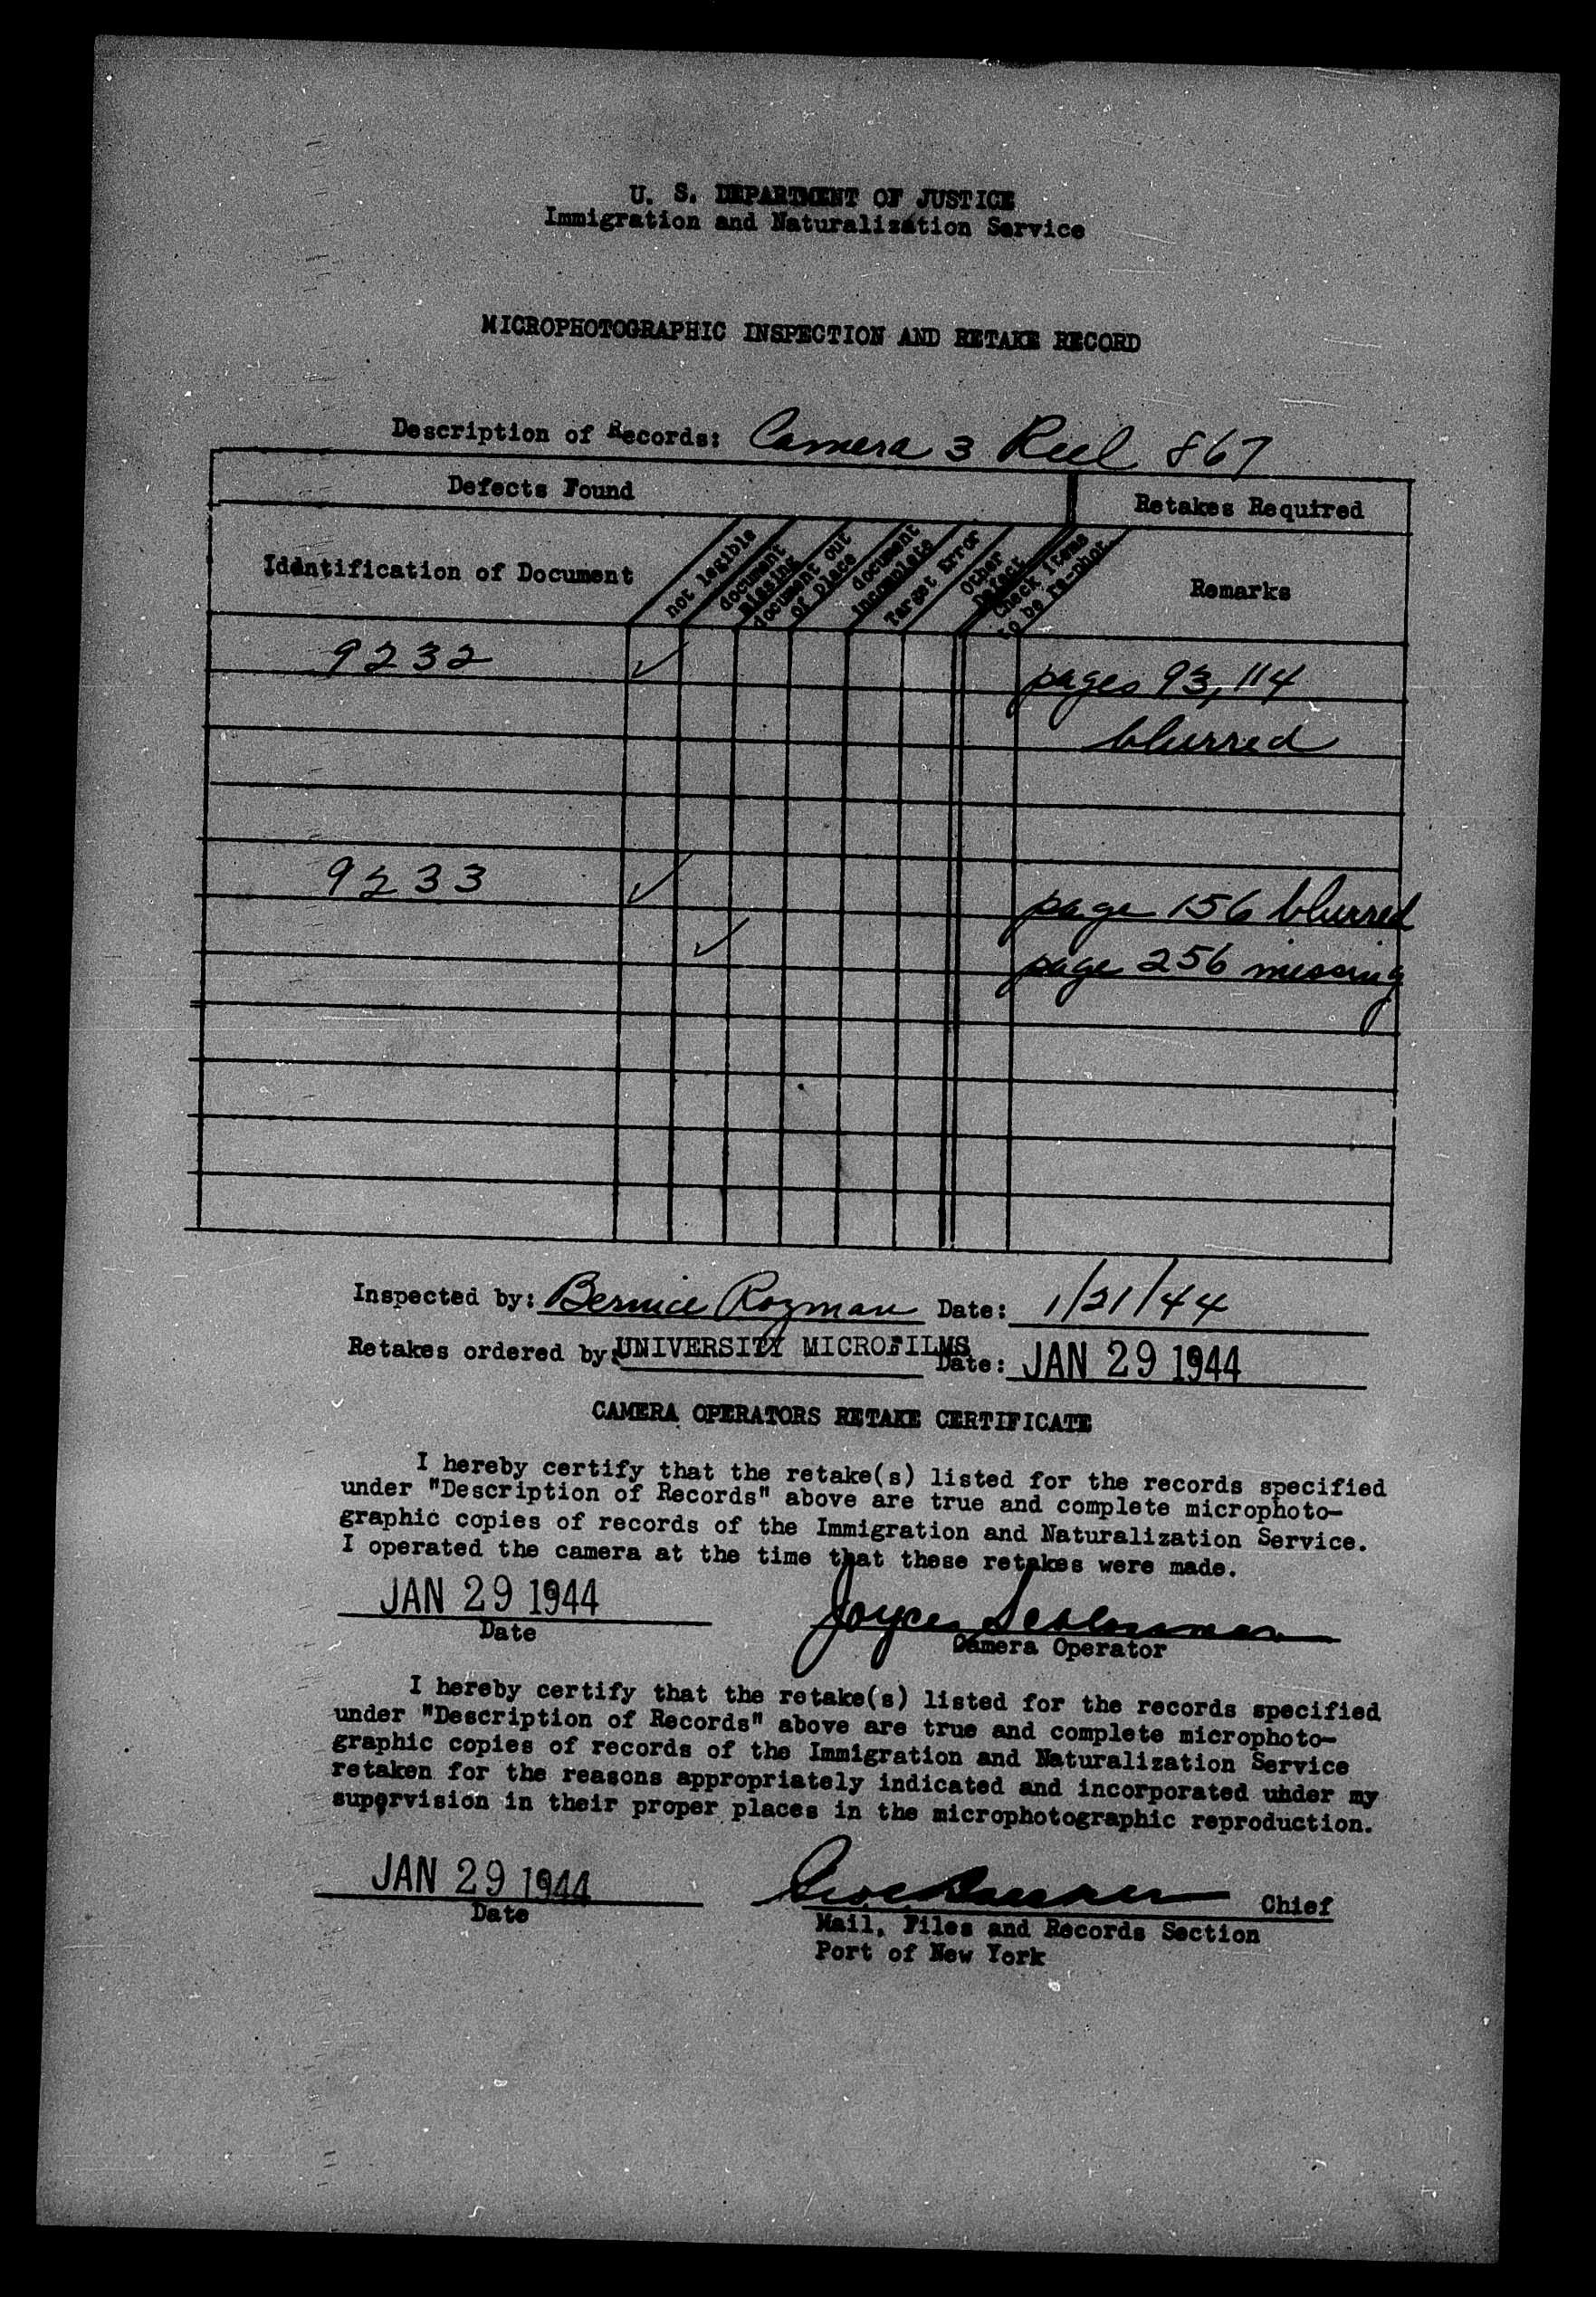 U. S. DEPARTMENT OF JUSTICE
Immigration and Naturalization Service
MICROPHOTOGRAPHIC INSPECTION AND RETAKE RECORD
Description of Records: Camera 3 Reel 867
Defects Found
Retakes Required
Identification of Document
not legible
document missing
document out of place
document incomplete
Target Error
Other Defect
Check items to be re-phot.
Remarks
9232 ✓ pages 93, 114
blurred
9233 ✓ page 156 blurred
✓ page 256 missing
Inspected by: Bernice Rozman Date: 1/21/44
Retakes ordered by: UNIVERSITY MICROFILMS Date: JAN 29 1944
CAMERA OPERATORS RETAKE CERTIFICATE
I hereby certify that the retake(s) listed for the records specified
under "Description of Records" above are true and complete microphoto-
graphic copies of records of the Immigration and Naturalization Service.
I operated the camera at the time that these retakes were made.
JAN 29 1944 Joyce
Date
Camera Operator
I hereby certify that the retake(s) listed for the records specified
under "Description of Records" above are true and complete microphoto-
graphic copies of records of the Immigration and Naturalization Service
retaken for the reasons appropriately indicated and incorporated under my
supervision in their proper places in the microphotographic reproduction.
JAN 29 1944
Chief
Date
Mail, Files and Records Section
Port of New York